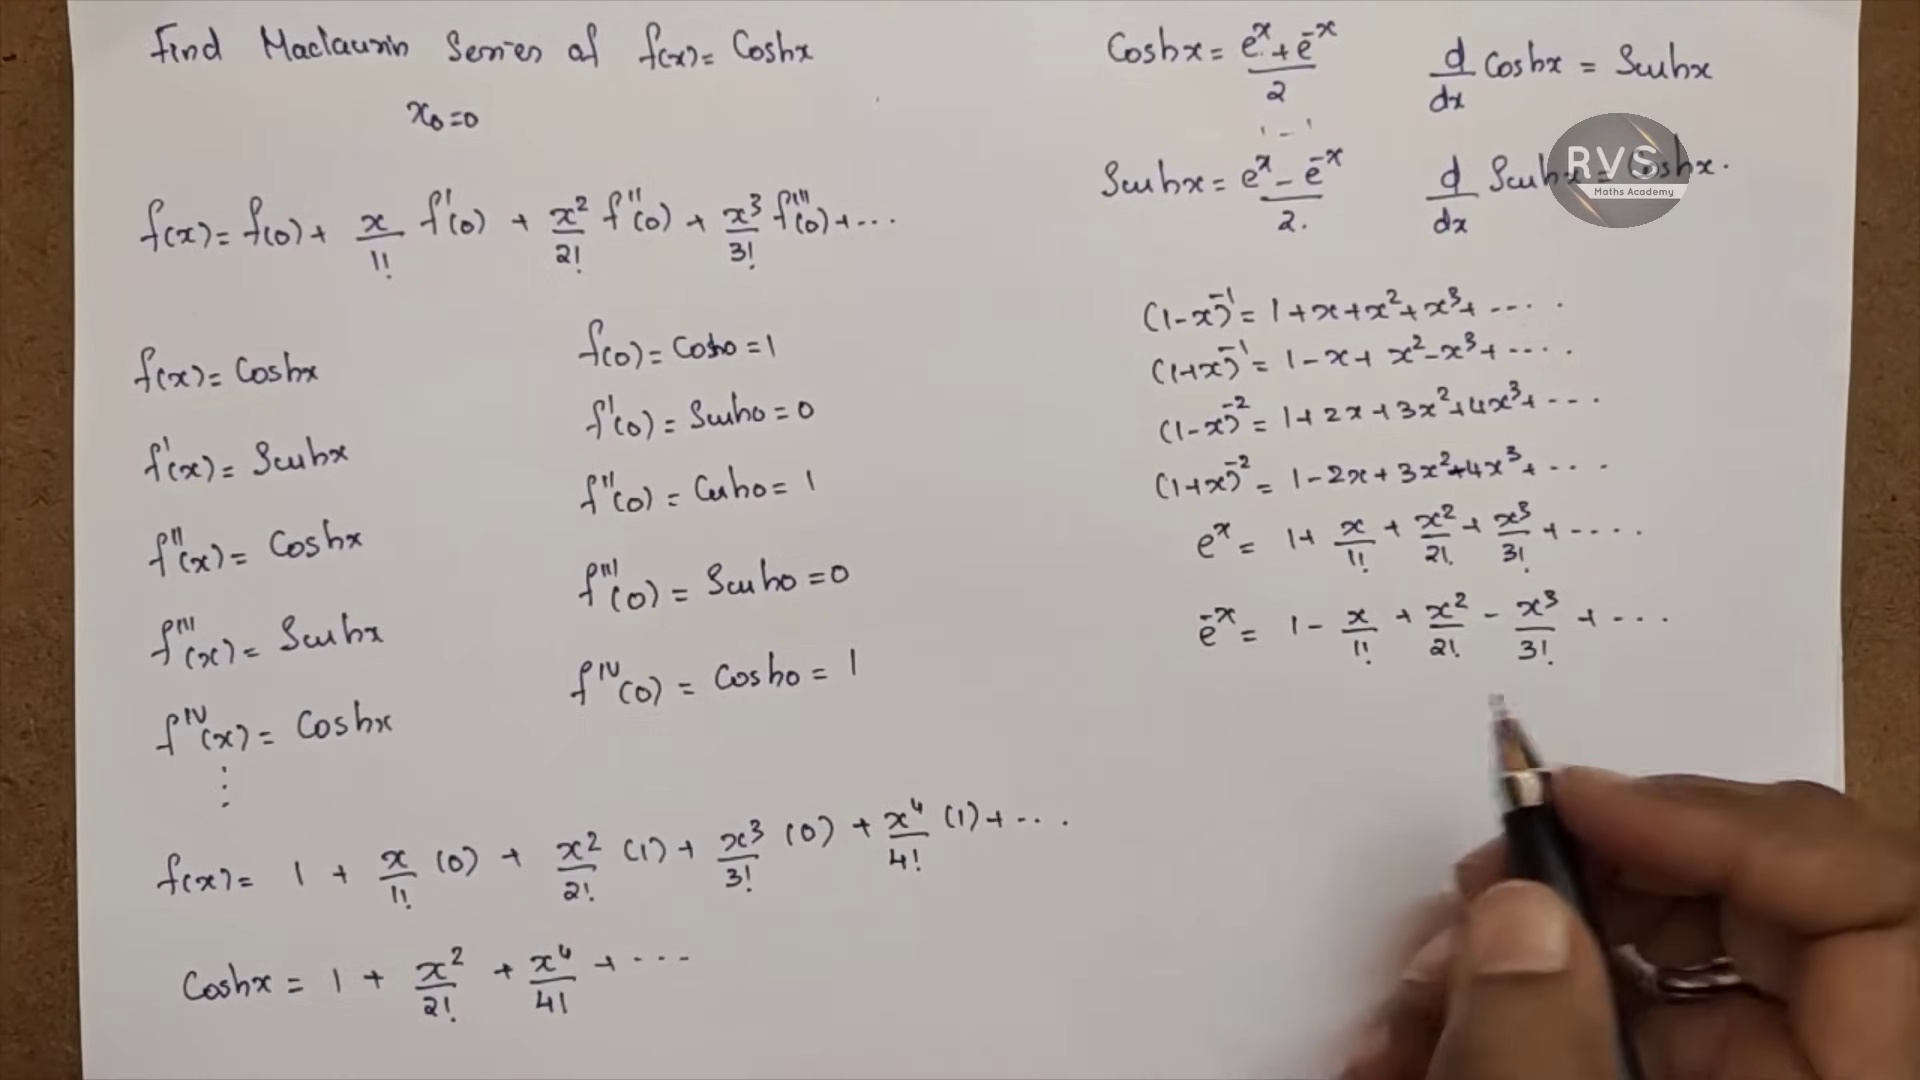 Find Maclaurin Series of f(x) = Coshx
x₀=0
f(x) = f(0) + x/1! f'(0) + x²/2! f''(0) + x³/3! f'''(0) + ...
f(x) = Coshx
f'(x) = Sinhx
f''(x) = Coshx
f'''(x) = Sinhx
f^IV(x) = Coshx
⋮
f(0) = Cosh0 = 1
f'(0) = Sinh0 = 0
f''(0) = Cosh0 = 1
f'''(0) = Sinh0 = 0
f^IV(0) = Cosh0 = 1
f(x) = 1 + x/1! (0) + x²/2! (1) + x³/3! (0) + x⁴/4! (1) + ...
Coshx = 1 + x²/2! + x⁴/4! + ...
Coshx = (e^x + e^-x)/2
d/dx Coshx = Sinhx
Sinhx = (e^x - e^-x)/2.
d/dx Sinhx = Coshx.
RVS
Maths Academy
(1-x)^-1 = 1+x+x²+x³+ ....
(1+x)^-1 = 1-x+x²-x³+ ....
(1-x)^-2 = 1+2x+3x²+4x³+ ...
(1+x)^-2 = 1-2x+3x²-4x³+ ...
e^x = 1+ x/1! + x²/2! + x³/3! + ....
e^-x = 1 - x/1! + x²/2! - x³/3! + ...